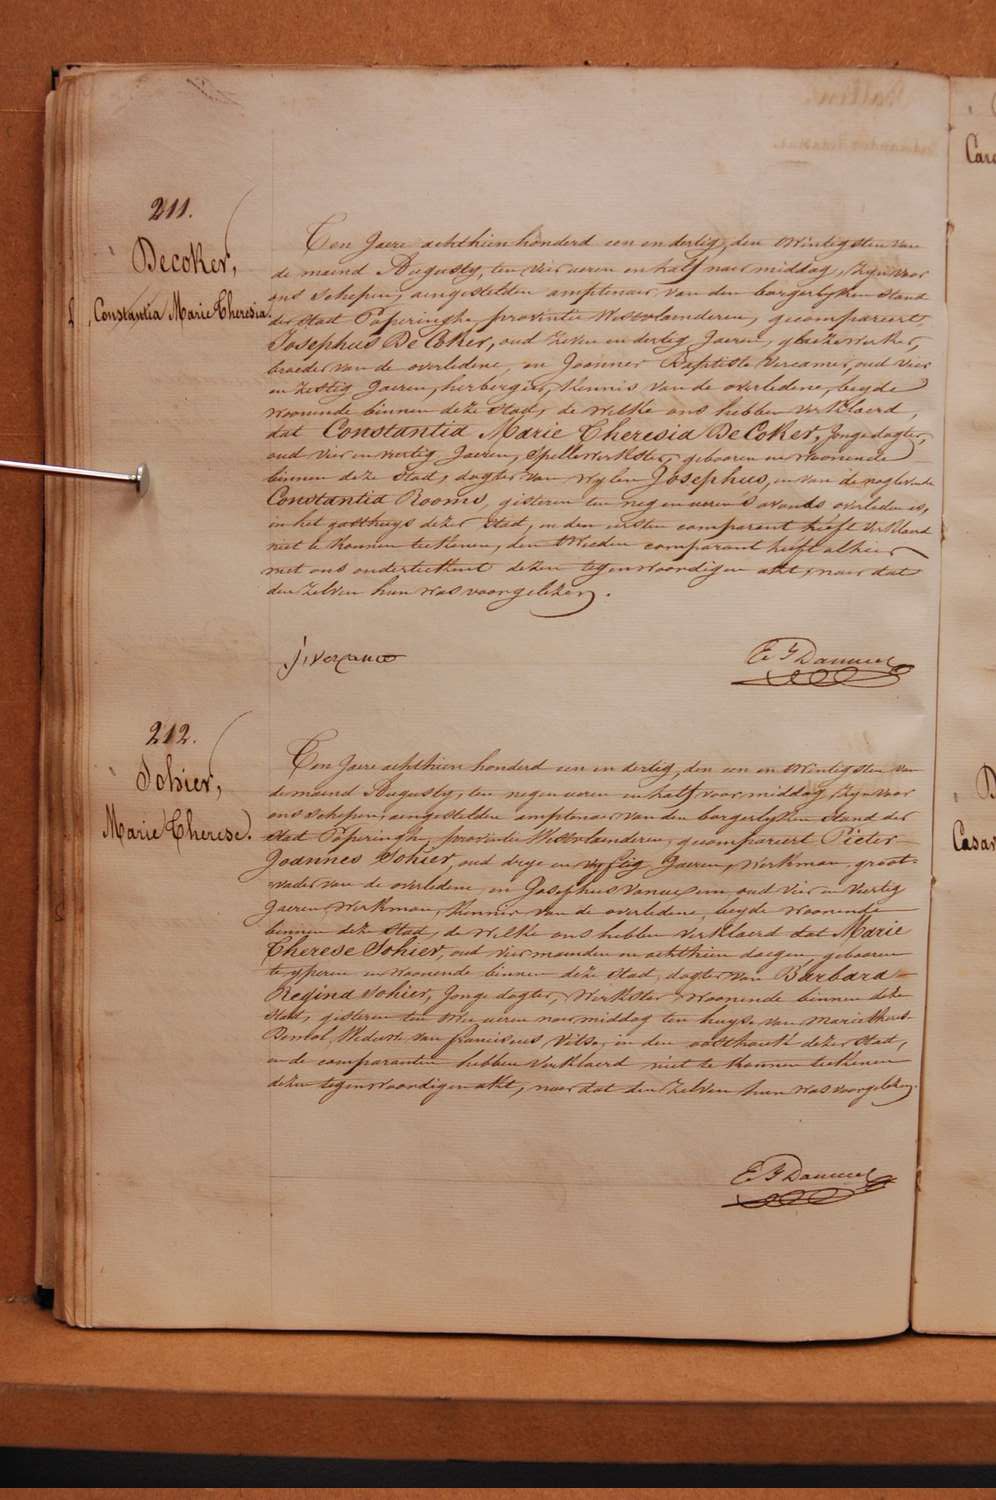 211.
Decoker,
Constantia Marie Theresia.
Ten Jaere achthien honderd een en dertig, den twintigsten van
de maend Augusty, ten vier ueren en half naer middag, zyn voor
ons Schepen, aengestelden amptenaer van den borgerlyken Stand
der Stad Poperinghe provintie Westvlaenderen, gecompareert
Josephus De Coker, oud zeven en dertig Jaeren, glaezewerker,
broeder van de overledene, en Joannes Baptiste Vercamer, oud vier
en zestig Jaeren, herbergier, kennis van de overledene, beyde
woonende binnen deze Stad, de welke ons hebben verklaerd,
dat Constantia Marie Theresia De Coker, Jonge dogter,
oud vier en veertig Jaeren, Spellewerkster, gebooren en woonende
binnen deze Stad, dogter van wylen Josephus, en van de noglevende
Constantia Rooms, gisteren ten negen ueren 's avonds overleden is,
in het gasthuys dezer Stad, en den eersten comparant heeft verklaerd
niet te konnen teekenen, den tweeden comparant heeft alhier
met ons onderteekent dezen tegenwoordigen akt, naer dat
den zelven hun was voorgelezen.
E F Dauwe
212.
Sohier,
Marie Therese.
Ten Jaere achthien honderd een en dertig, den een en twintigsten van
de maend Augusty, ten negen ueren en half voor middag, zyn voor
ons Schepen, aengestelden amptenaer van den borgerlyken Stand der
Stad Poperinghe, provintie Westvlaenderen, gecompareert Pieter
Joannes Sohier, oud dryen en vyftig Jaeren, werkman, groot-
vader van de overledene, en Josephus oud vier en veertig
Jaeren, werkman, kennis van de overledene, beyde woonende
binnen deze Stad, de welke ons hebben verklaerd dat Marie
Therese Sohier, oud vier maenden en achthien daegen, gebooren
te yperen en woonende binnen deze Stad, dogter van Barbara
Regina Sohier, Jonge dogter, werkster woonende binnen deze
Stad, gisteren ten twee ueren naer middag ten huyse van Marie
weduwe van franciscus in den oosthoek dezer Stad,
en de comparanten hebben verklaerd niet te konnen teekenen
dezen tegenwoordigen akt, naer dat den zelven hun was voorgelezen.
E F Dauwe